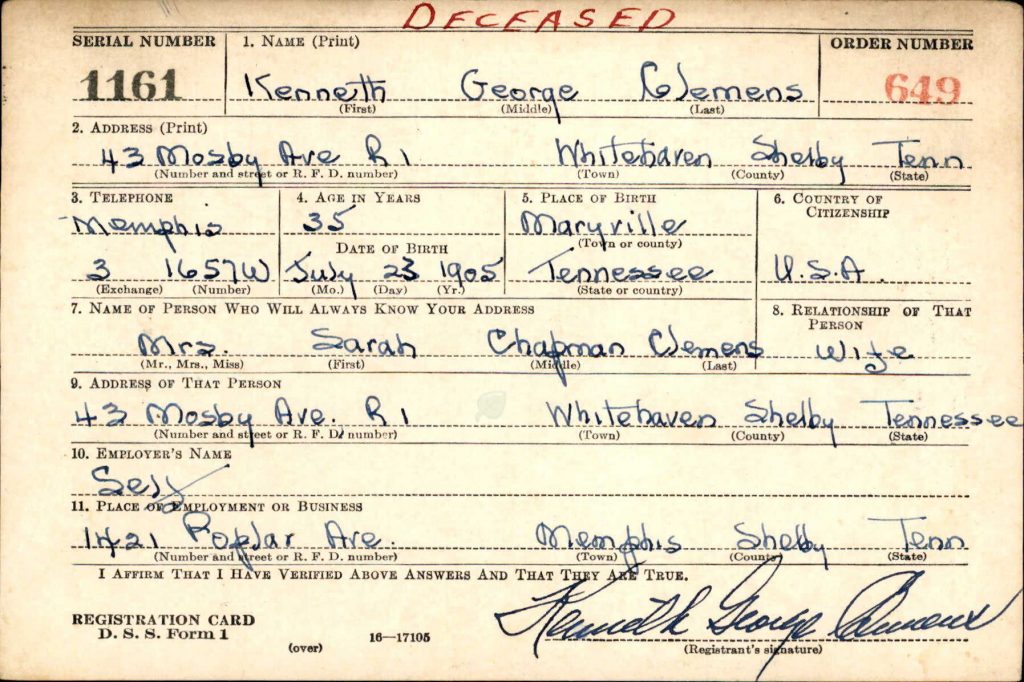 DECEASED
SERIAL NUMBER 1. NAME (Print) ORDER NUMBER
1161 Kenneth George Clemens 649
(First) (Middle) (Last)
2. ADDRESS (Print)
43 Mosby Ave R 1 Whitehaven Shelby Tenn
(Number and street or R. F. D. number) (Town) (County) (State)
3. TELEPHONE 4. AGE IN YEARS 5. PLACE OF BIRTH 6. COUNTRY OF CITIZENSHIP
Memphis 35 Maryville
DATE OF BIRTH (Town or county)
3 1657W July 23 1905 Tennessee U.S.A.
(Exchange) (Number) (Mo.) (Day) (Yr.) (State or country)
7. NAME OF PERSON WHO WILL ALWAYS KNOW YOUR ADDRESS 8. RELATIONSHIP OF THAT PERSON
Mrs. Sarah Chapman Clemens Wife
(Mr., Mrs., Miss) (First) (Middle) (Last)
9. ADDRESS OF THAT PERSON
43 Mosby Ave. R 1 Whitehaven Shelby Tennessee
(Number and street or R. F. D. number) (Town) (County) (State)
10. EMPLOYER'S NAME
Self
11. PLACE OF EMPLOYMENT OR BUSINESS
1421 Poplar Ave. Memphis Shelby Tenn
(Number and street or R. F. D. number) (Town) (County) (State)
I AFFIRM THAT I HAVE VERIFIED ABOVE ANSWERS AND THAT THEY ARE TRUE.
REGISTRATION CARD
D. S. S. Form 1 16—17105 Kenneth George Clemens
(over) (Registrant's signature)